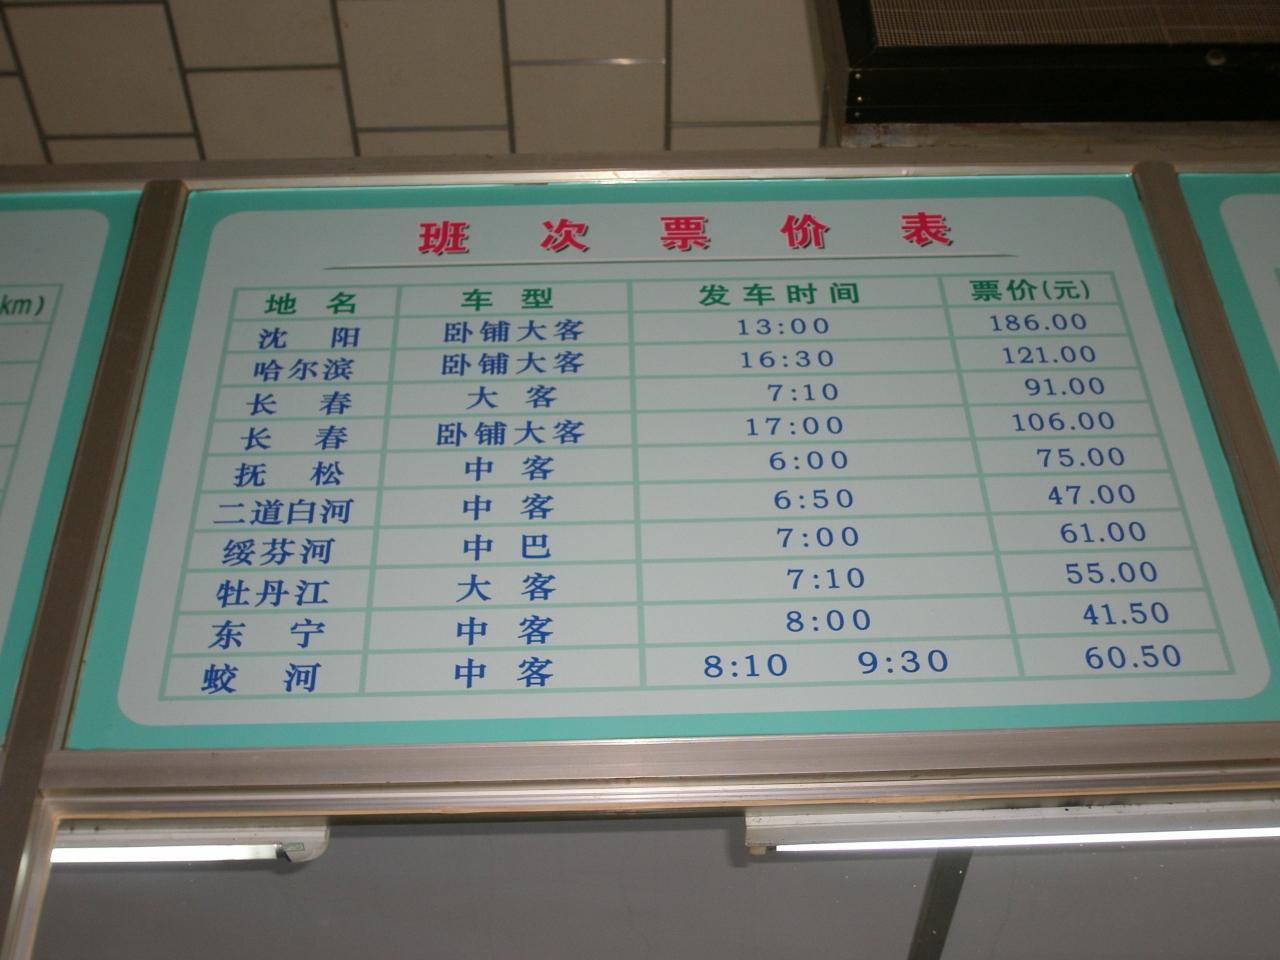 km)
班次票价表
地名 车型 发车时间 票价(元)
沈阳 卧铺大客 13:00 186.00
哈尔滨 卧铺大客 16:30 121.00
长春 大客 7:10 91.00
长春 卧铺大客 17:00 106.00
抚松 中客 6:00 75.00
二道白河 中客 6:50 47.00
绥芬河 中巴 7:00 61.00
牡丹江 大客 7:10 55.00
东宁 中客 8:00 41.50
蛟河 中客 8:10 9:30 60.50